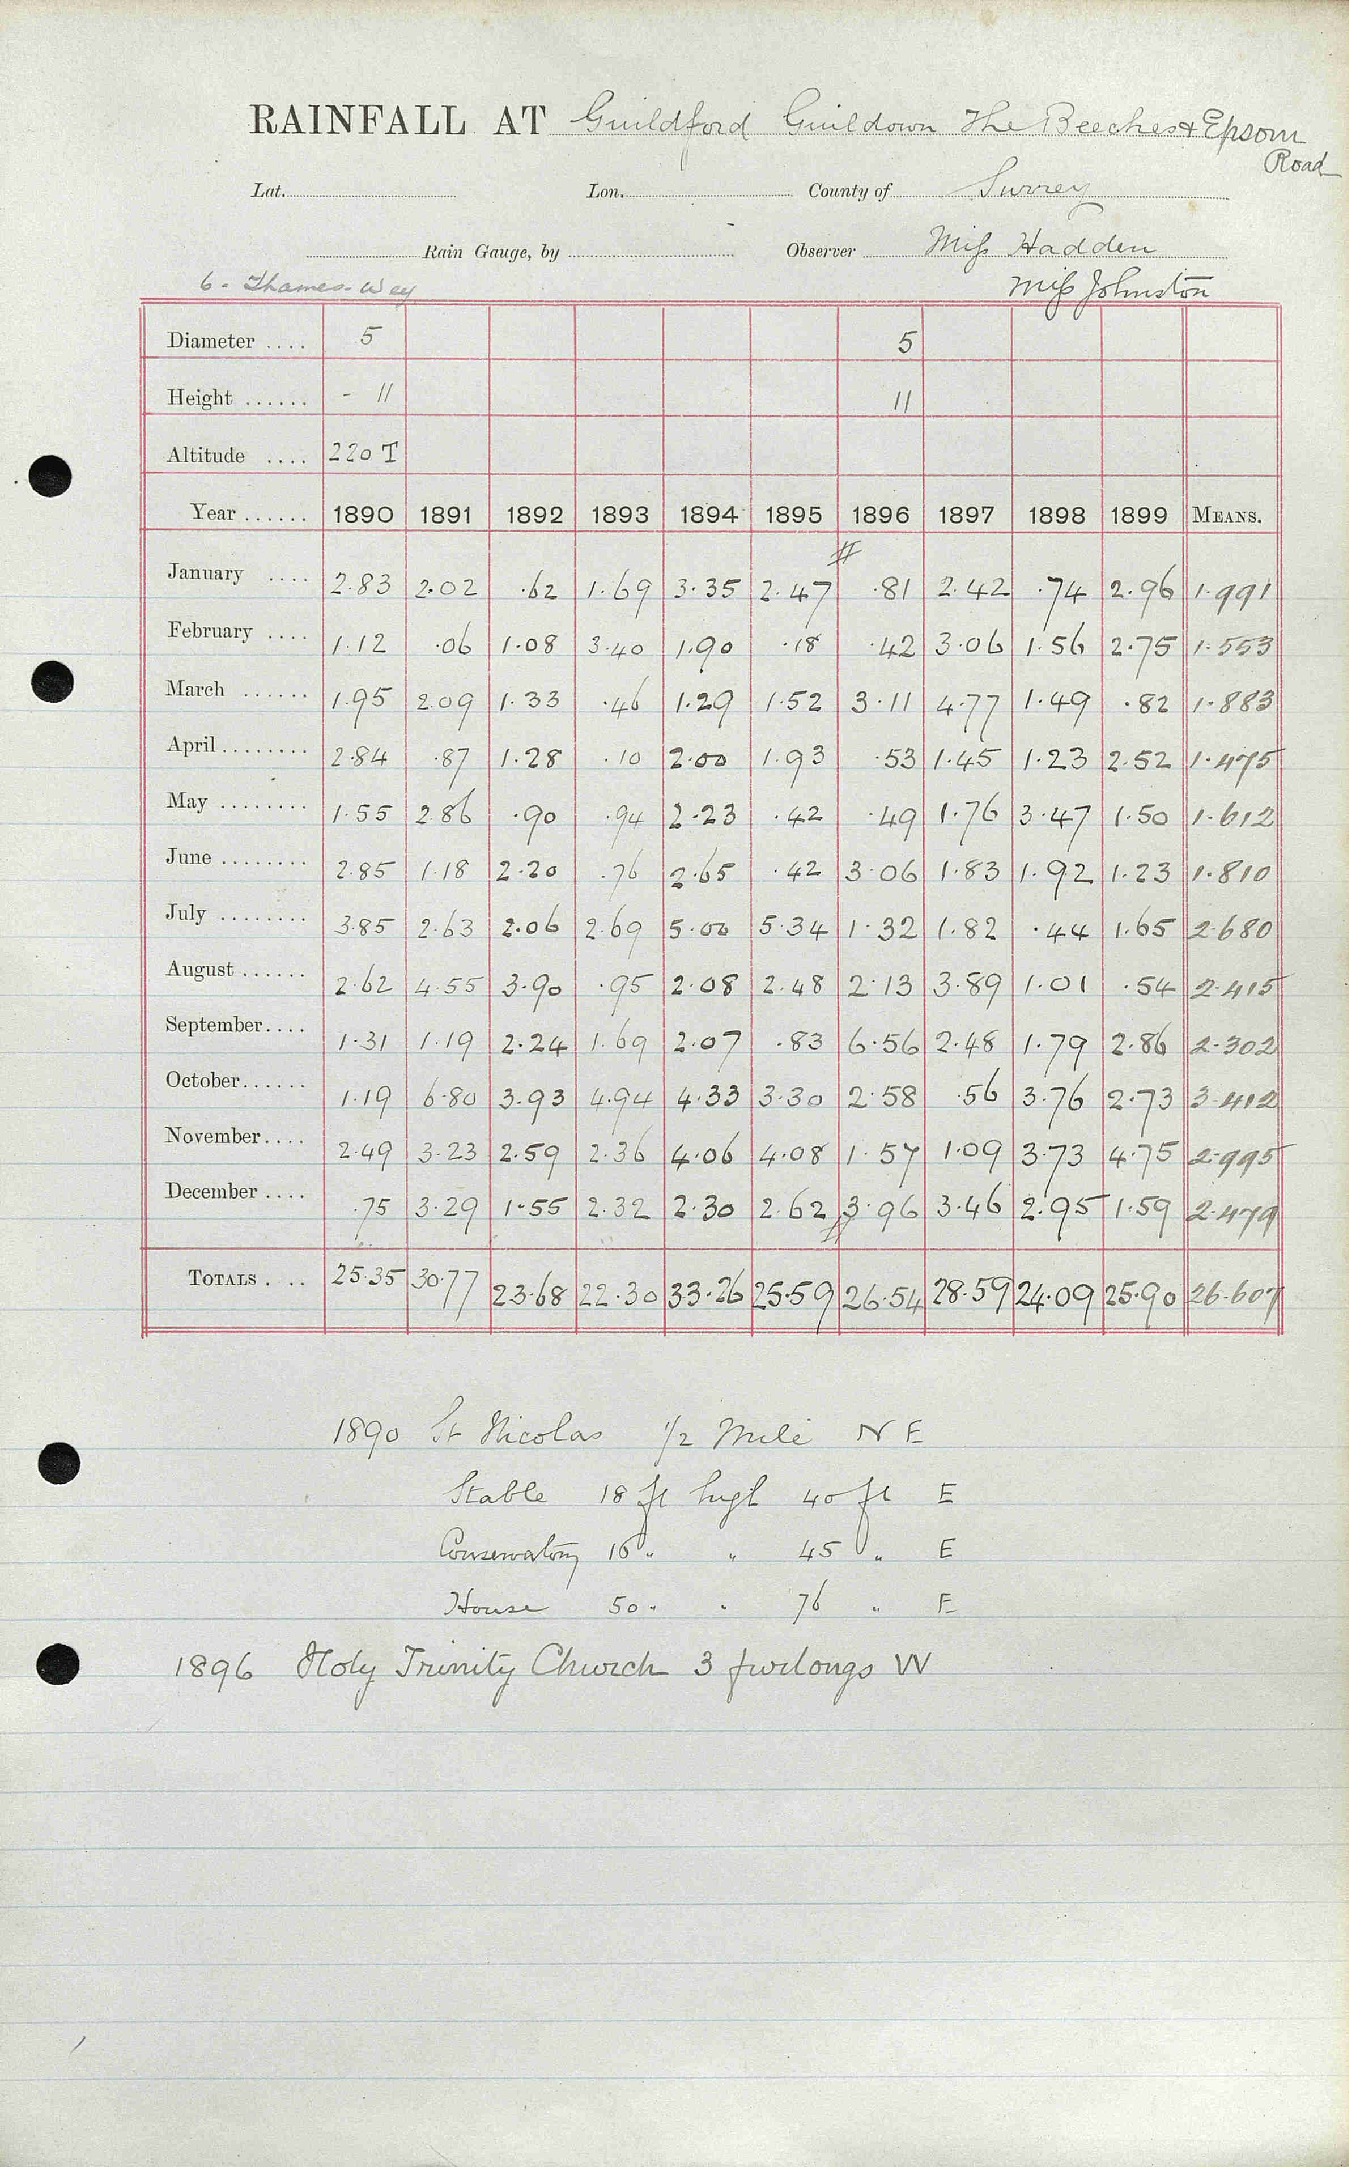 RAINFALL AT Guildford Guildown The Beeches & Epsom
Road
Lat. Lon. County of Surrey
Rain Gauge, by Observer Miss Hadden
6 - Thames - Wey Miss Johnston
Diameter .... 5 5
Height ...... - 11 11
Altitude .... 220 T
Year ...... 1890 1891 1892 1893 1894 1895 1896 1897 1898 1899 MEANS.
January .... 2.83 2.02 .62 1.69 3.35 2.47 # .81 2.42 .74 2.96 1.991
February .... 1.12 .06 1.08 3.40 1.90 .18 .42 3.06 1.56 2.75 1.553
March ...... 1.95 2.09 1.33 .46 1.29 1.52 3.11 4.77 1.49 .82 1.883
April ........ 2.84 .87 1.28 .10 2.00 1.93 .53 1.45 1.23 2.52 1.475
May ........ 1.55 2.86 .90 .94 2.23 .42 .49 1.76 3.47 1.50 1.612
June ........ 2.85 1.18 2.20 .76 2.65 .42 3.06 1.83 1.92 1.23 1.810
July ........ 3.85 2.63 2.06 2.69 5.00 5.34 1.32 1.82 .44 1.65 2.680
August ...... 2.62 4.55 3.90 .95 2.08 2.48 2.13 3.89 1.01 .54 2.415
September.... 1.31 1.19 2.24 1.69 2.07 .83 6.56 2.48 1.79 2.86 2.302
October...... 1.19 6.80 3.93 4.94 4.33 3.30 2.58 .56 3.76 2.73 3.412
November.... 2.49 3.23 2.59 2.36 4.06 4.08 1.57 1.09 3.73 4.75 2.995
December .... .75 3.29 1.55 2.32 2.30 2.62 3.96 3.46 2.95 1.59 2.479
TOTALS .... 25.35 30.77 23.68 22.30 33.26 25.59 26.54 28.59 24.09 25.90 26.607
1890 St Nicolas 1/2 Mile N E
Stable 18 ft high 40 ft E
Conservatory 16 " " 45 " E
House 50 " " 76 " E
1896 Holy Trinity Church 3 furlongs W